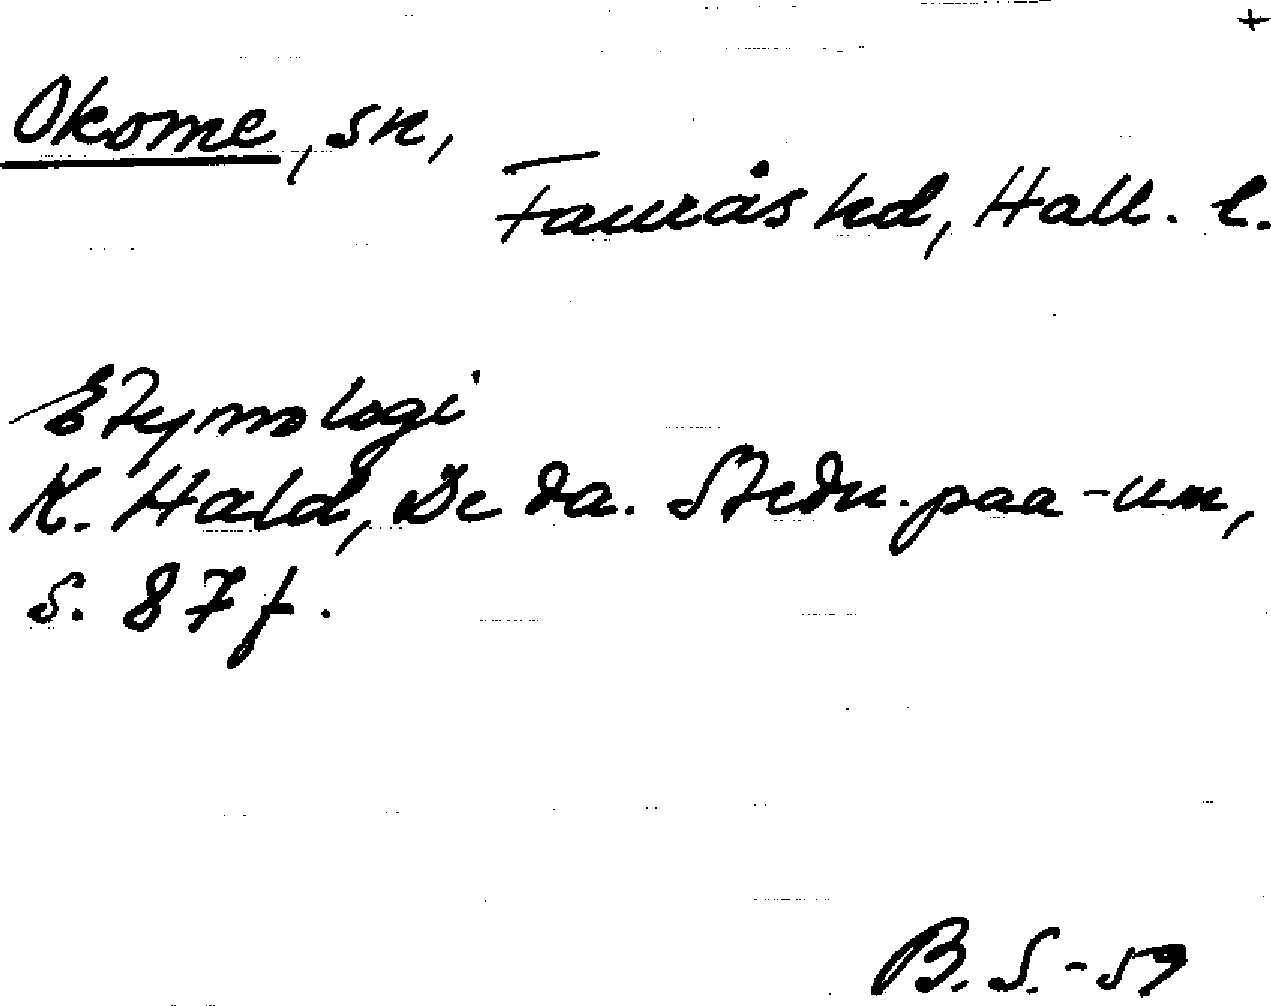 +
Okome, sn,
Faurås hd, Hall. l.
Etymologi
K. Hald, De da. Stedn. paa -um,
s. 87 f.
B. S. -59